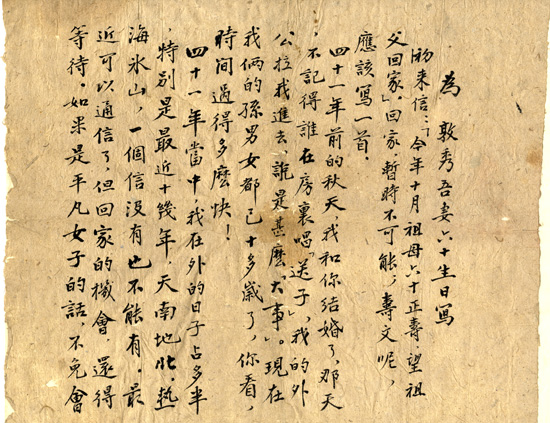 為敦秀吾妻六十生日寫
昉来信：「今年十月祖母六十正壽，望祖
父回家」。回家，暫時不可能，壽文呢，
應該寫一首．
四十一年前的秋天，我和你結婚了，那天
，不記得誰在房裏唱「送子」，我的外
公拉我進去，說是甚麽「大事」。現在
我俩的孫男女都已十多歲了，你看，
時间過得多麽快！
四十一年當中，我在外的日子占多半
，特别是最近十幾年，天南地北，熱
海氷山，一個信没有也不能有。最
近可以通信了，但回家的機會，還得
等待。如果是平凡女子的話，不免會